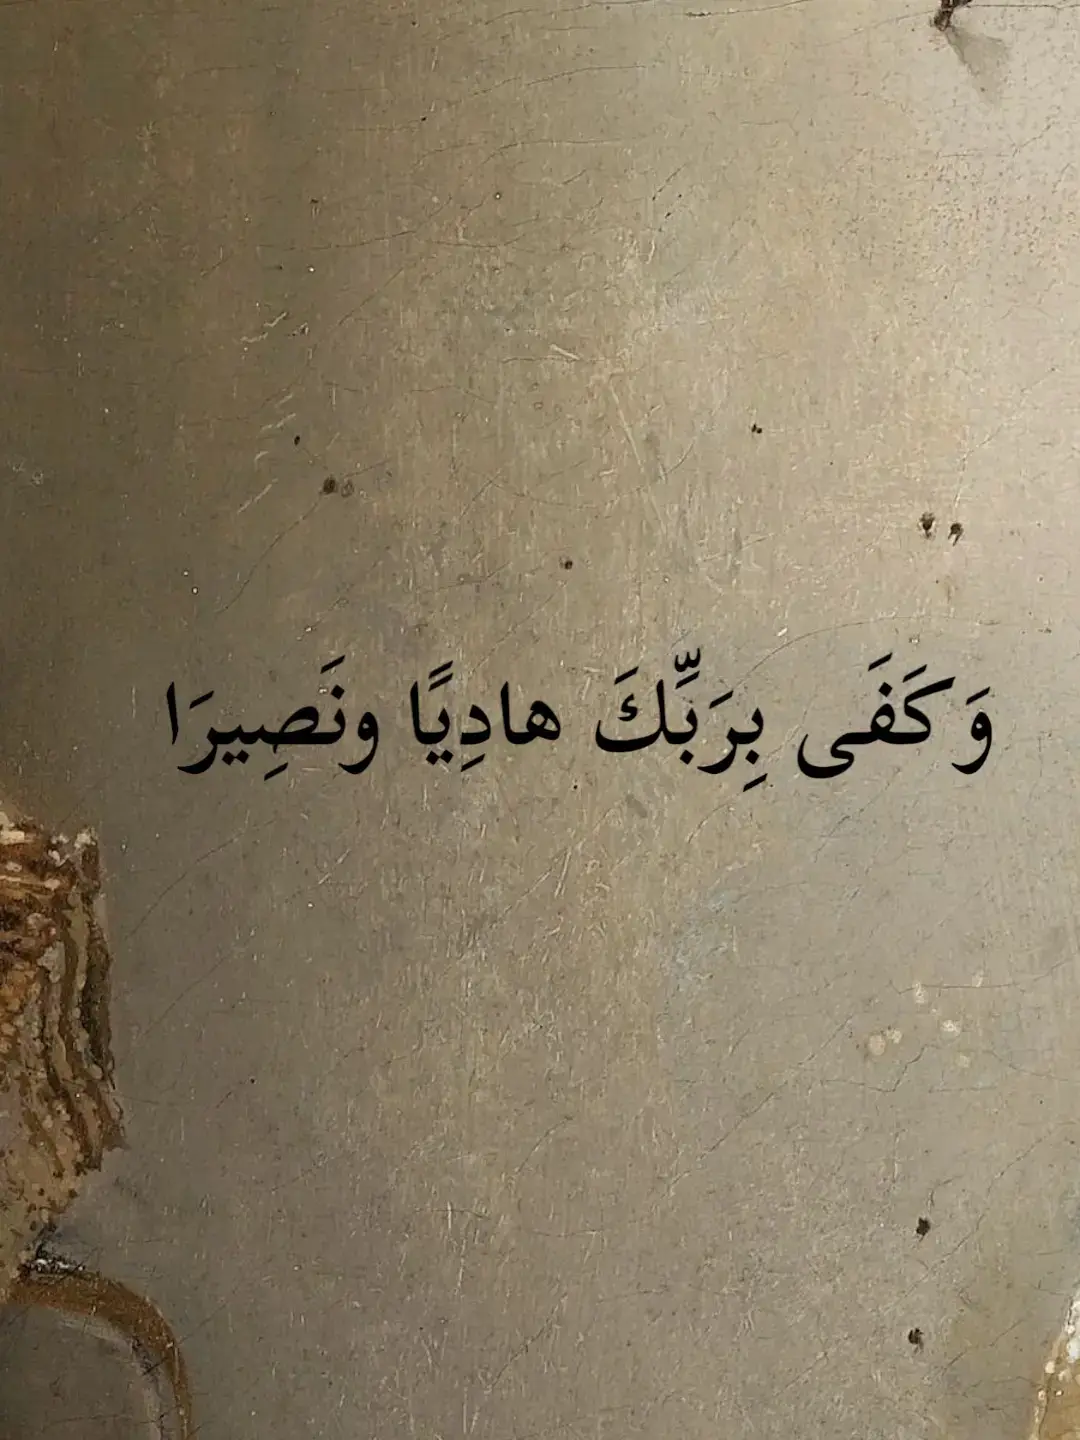 وَكَفَى بِرَبِّكَ هادِيًا ونَصِيرَا